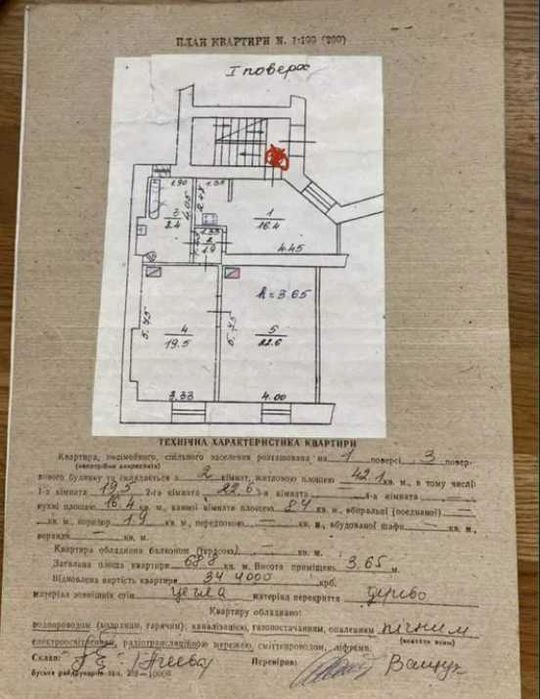 ПЛАН КВАРТИРИ N. 1:100 (200)
I поверх
1.90
4.05
2.45
3
2.4
1
16.4
2
1.9
4.45
h = 3.65
5.75
4
19.5
5.75
5
22.6
3.33
4.00
ТЕХНІЧНА ХАРАКТЕРИСТИКА КВАРТИРИ
Квартира, посімейного, спільного заселення розташована на 1 поверсі 3 повер-
(непотрібне закреслити)
хового будинку та складається з 2 кімнат, житловою площею 42.1 кв. м., в тому числі:
1-а кімната 19.5 2-га кімната 22.6 3-я кімната — 4-а кімната
кухні площею 16.4 кв. м., ванної кімнати площею кв. м., вбиральні (поєднаної) —
кв. м., коридор 1.9 кв. м., передпокою — кв. м., вбудованої шафи — кв. м.,
веранди — кв. м.
Квартира обладнана балконом (терасою) — кв. м.
Загальна площа квартири 68.8 кв. м. Висота приміщень 3.65 м.
Відновлена вартість квартири 344000 крб.
матеріал зовнішніх стін цегла матеріал перекриття дерево
Квартиру обладнано:
водопроводом (холодним, гарячим), каналізацією, газопостачанням, опаленням пічним
електроосвітленням, радіотрансляційною мережею, сміттєпроводом, ліфтами.
Склав: Перевірив: